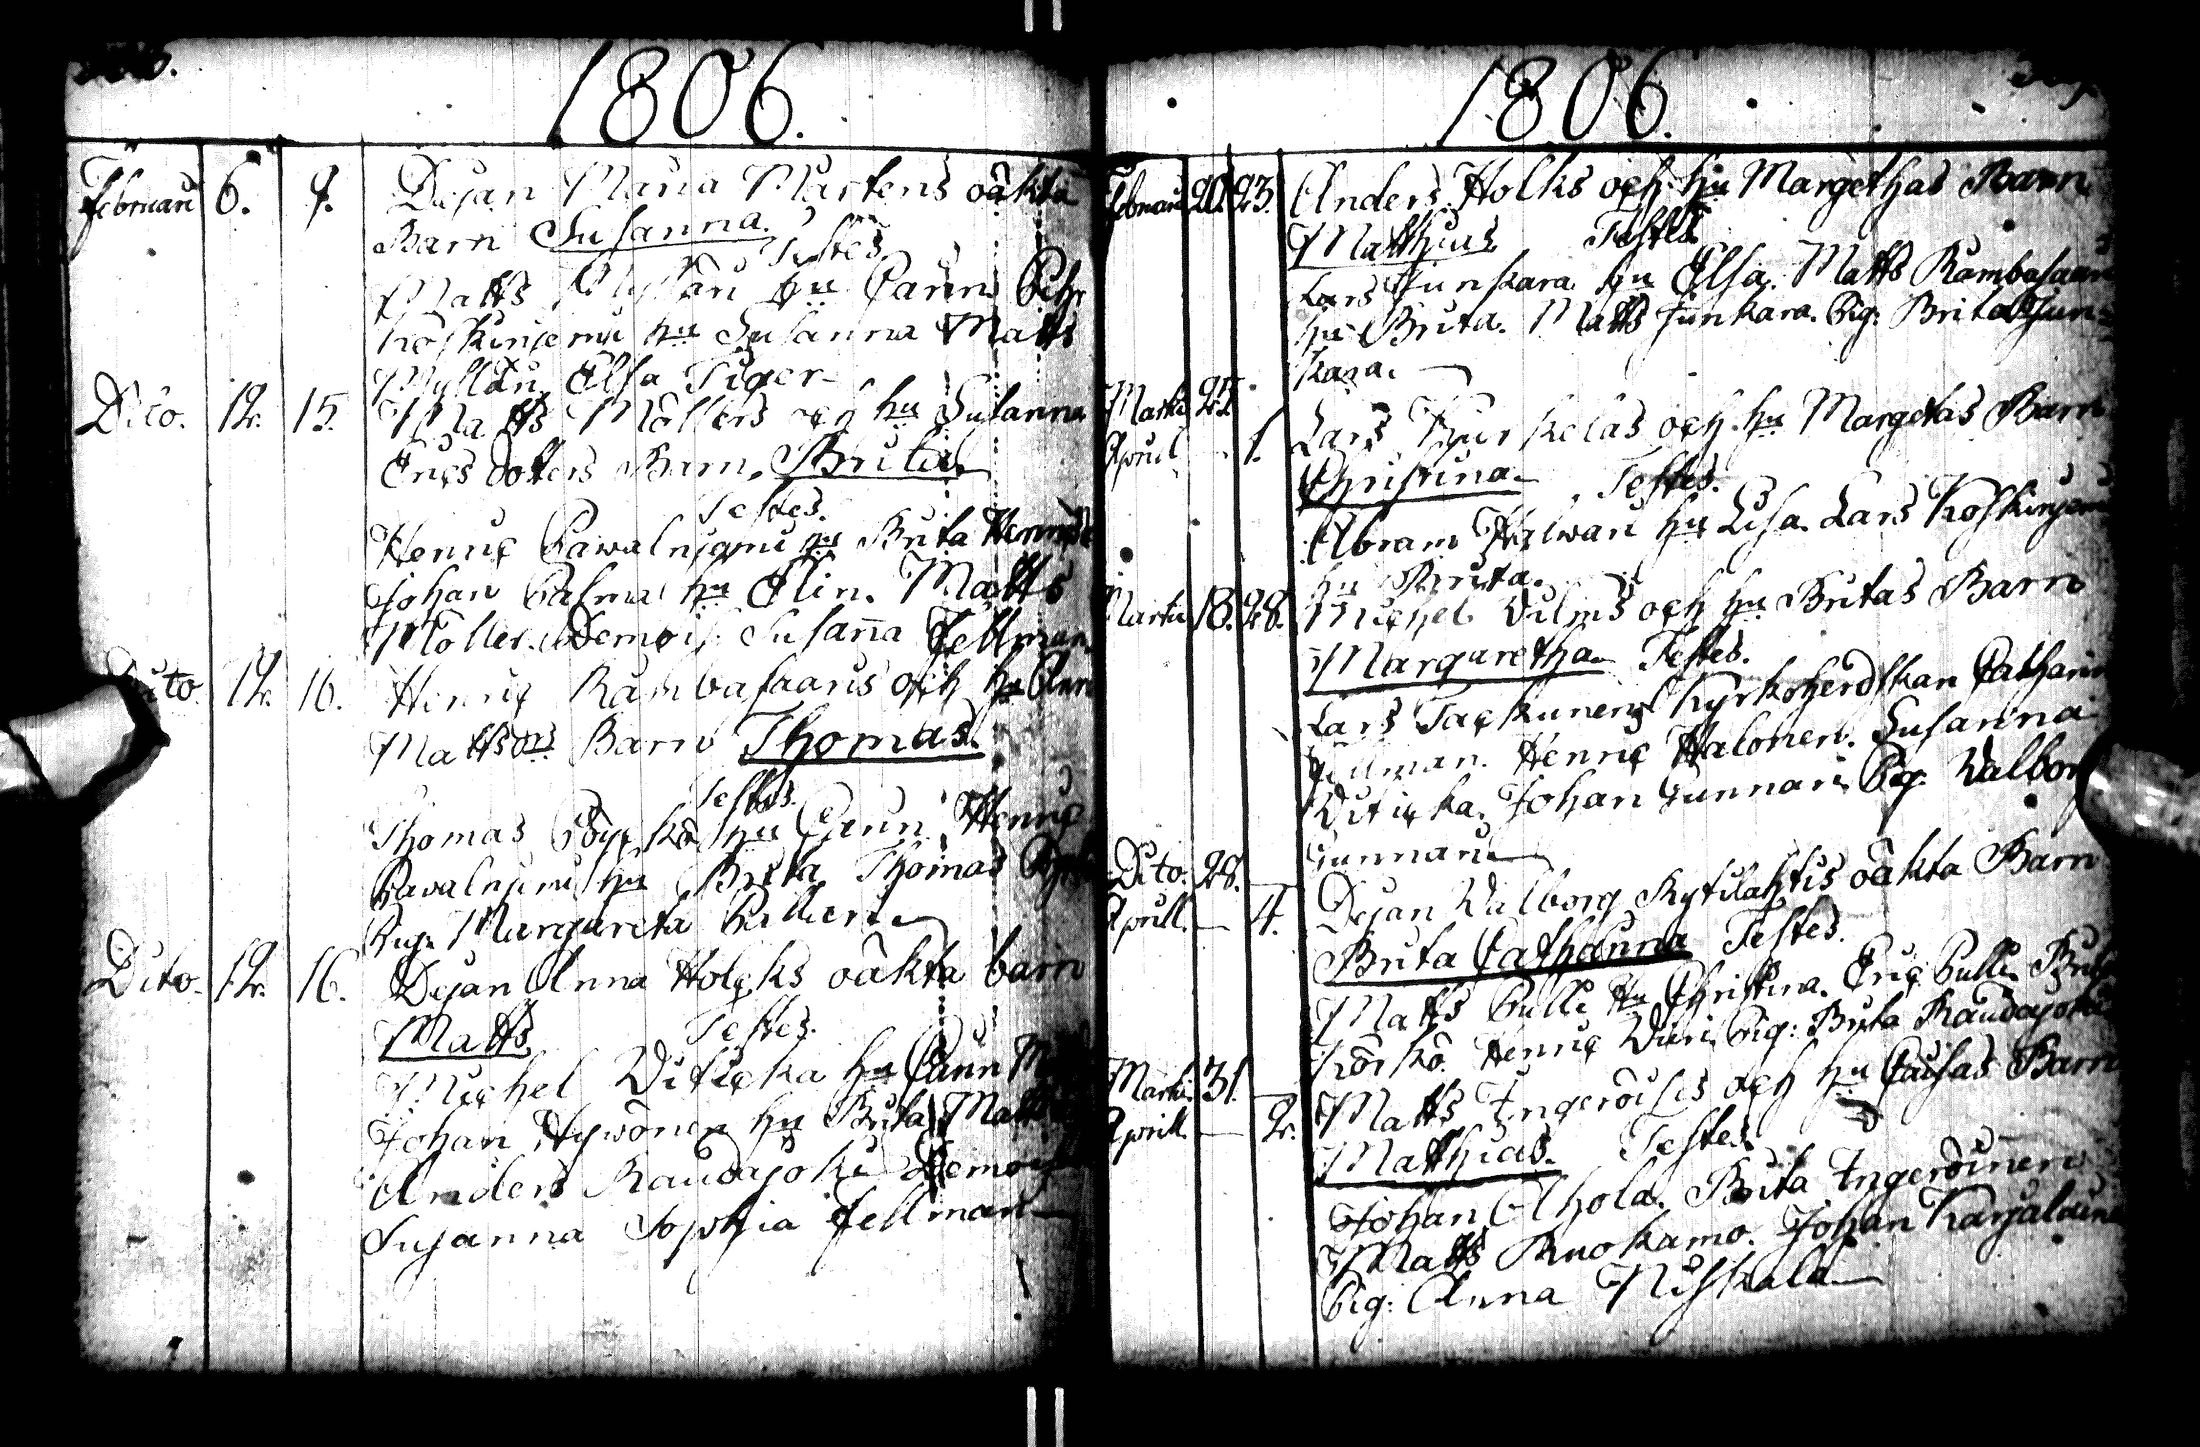 1806.
Februarii 6. 9. Pigan Maria Martens oäkta
Barn Susanna.
Testes
Matts hu Carin
hu Susanna Matts
Elsa Tiger
Dito. 12. 15. Matts Möllers och hu Susanna
Ericsdotters Barn. Brita
Testes.
Henric Pawalniemi hu Brita
Johan Palma hu Elin. Matts
Möller. Demois. Susanna Fellman
Dito. 12. 16. Henric Kambasaaris och hu
Mattson Barn Thomas.
Testes.
Thomas hu Henric
Pawalniemi hu Brita Thomas
Pig. Margareta
Dito. 12. 16. Pigan Anna Holcks oäkta barn
Matts. Testes.
Michel Witicka hu
Johan Hywönen hu Brita Matts
Anders Raudajoki Demois
Susanna Sophia Fellman
1806.
Februarii 20. 23. Anders Holks och hu Margethas Barn
Matthias Testes
Lars Junkara hu Elsa. Matts Kambasaari
hu Brita. Matts Junkara. Pig: Brita Jun=
kara.
Martii 25.
Aprill — 1. Lars och hu Margetas Barn
Christina. Testes.
Abram hu Lisa. Lars Koskiniemi
hu Brita.
Martii 18. 28. Michel och hu Britas Barn
Margaretha Testes.
Lars Tackunen Kyrkoherdskan Catharin
Fellman. Henric Halonen. Susanna
Witicka. Johan Gunnari Pig. Walbor
Gunnari
Dito. 28.
Aprill. — 4. Pigan Walborg Kytilahtis oäkta Barn
Brita Catharina Testes.
Matts Pulli hu Christina. Eric Pulli
Körkö. Henric Pig: Brita Raudajoki
Martii. 31.
Aprill. — 2. Matts Ingeröises och hu Caisas Barn
Mathias. Testes
Johan Ahola. Brita Ingeröinen
Matts Ruokamo. Johan Karjalainen
Pig: Anna Niskala